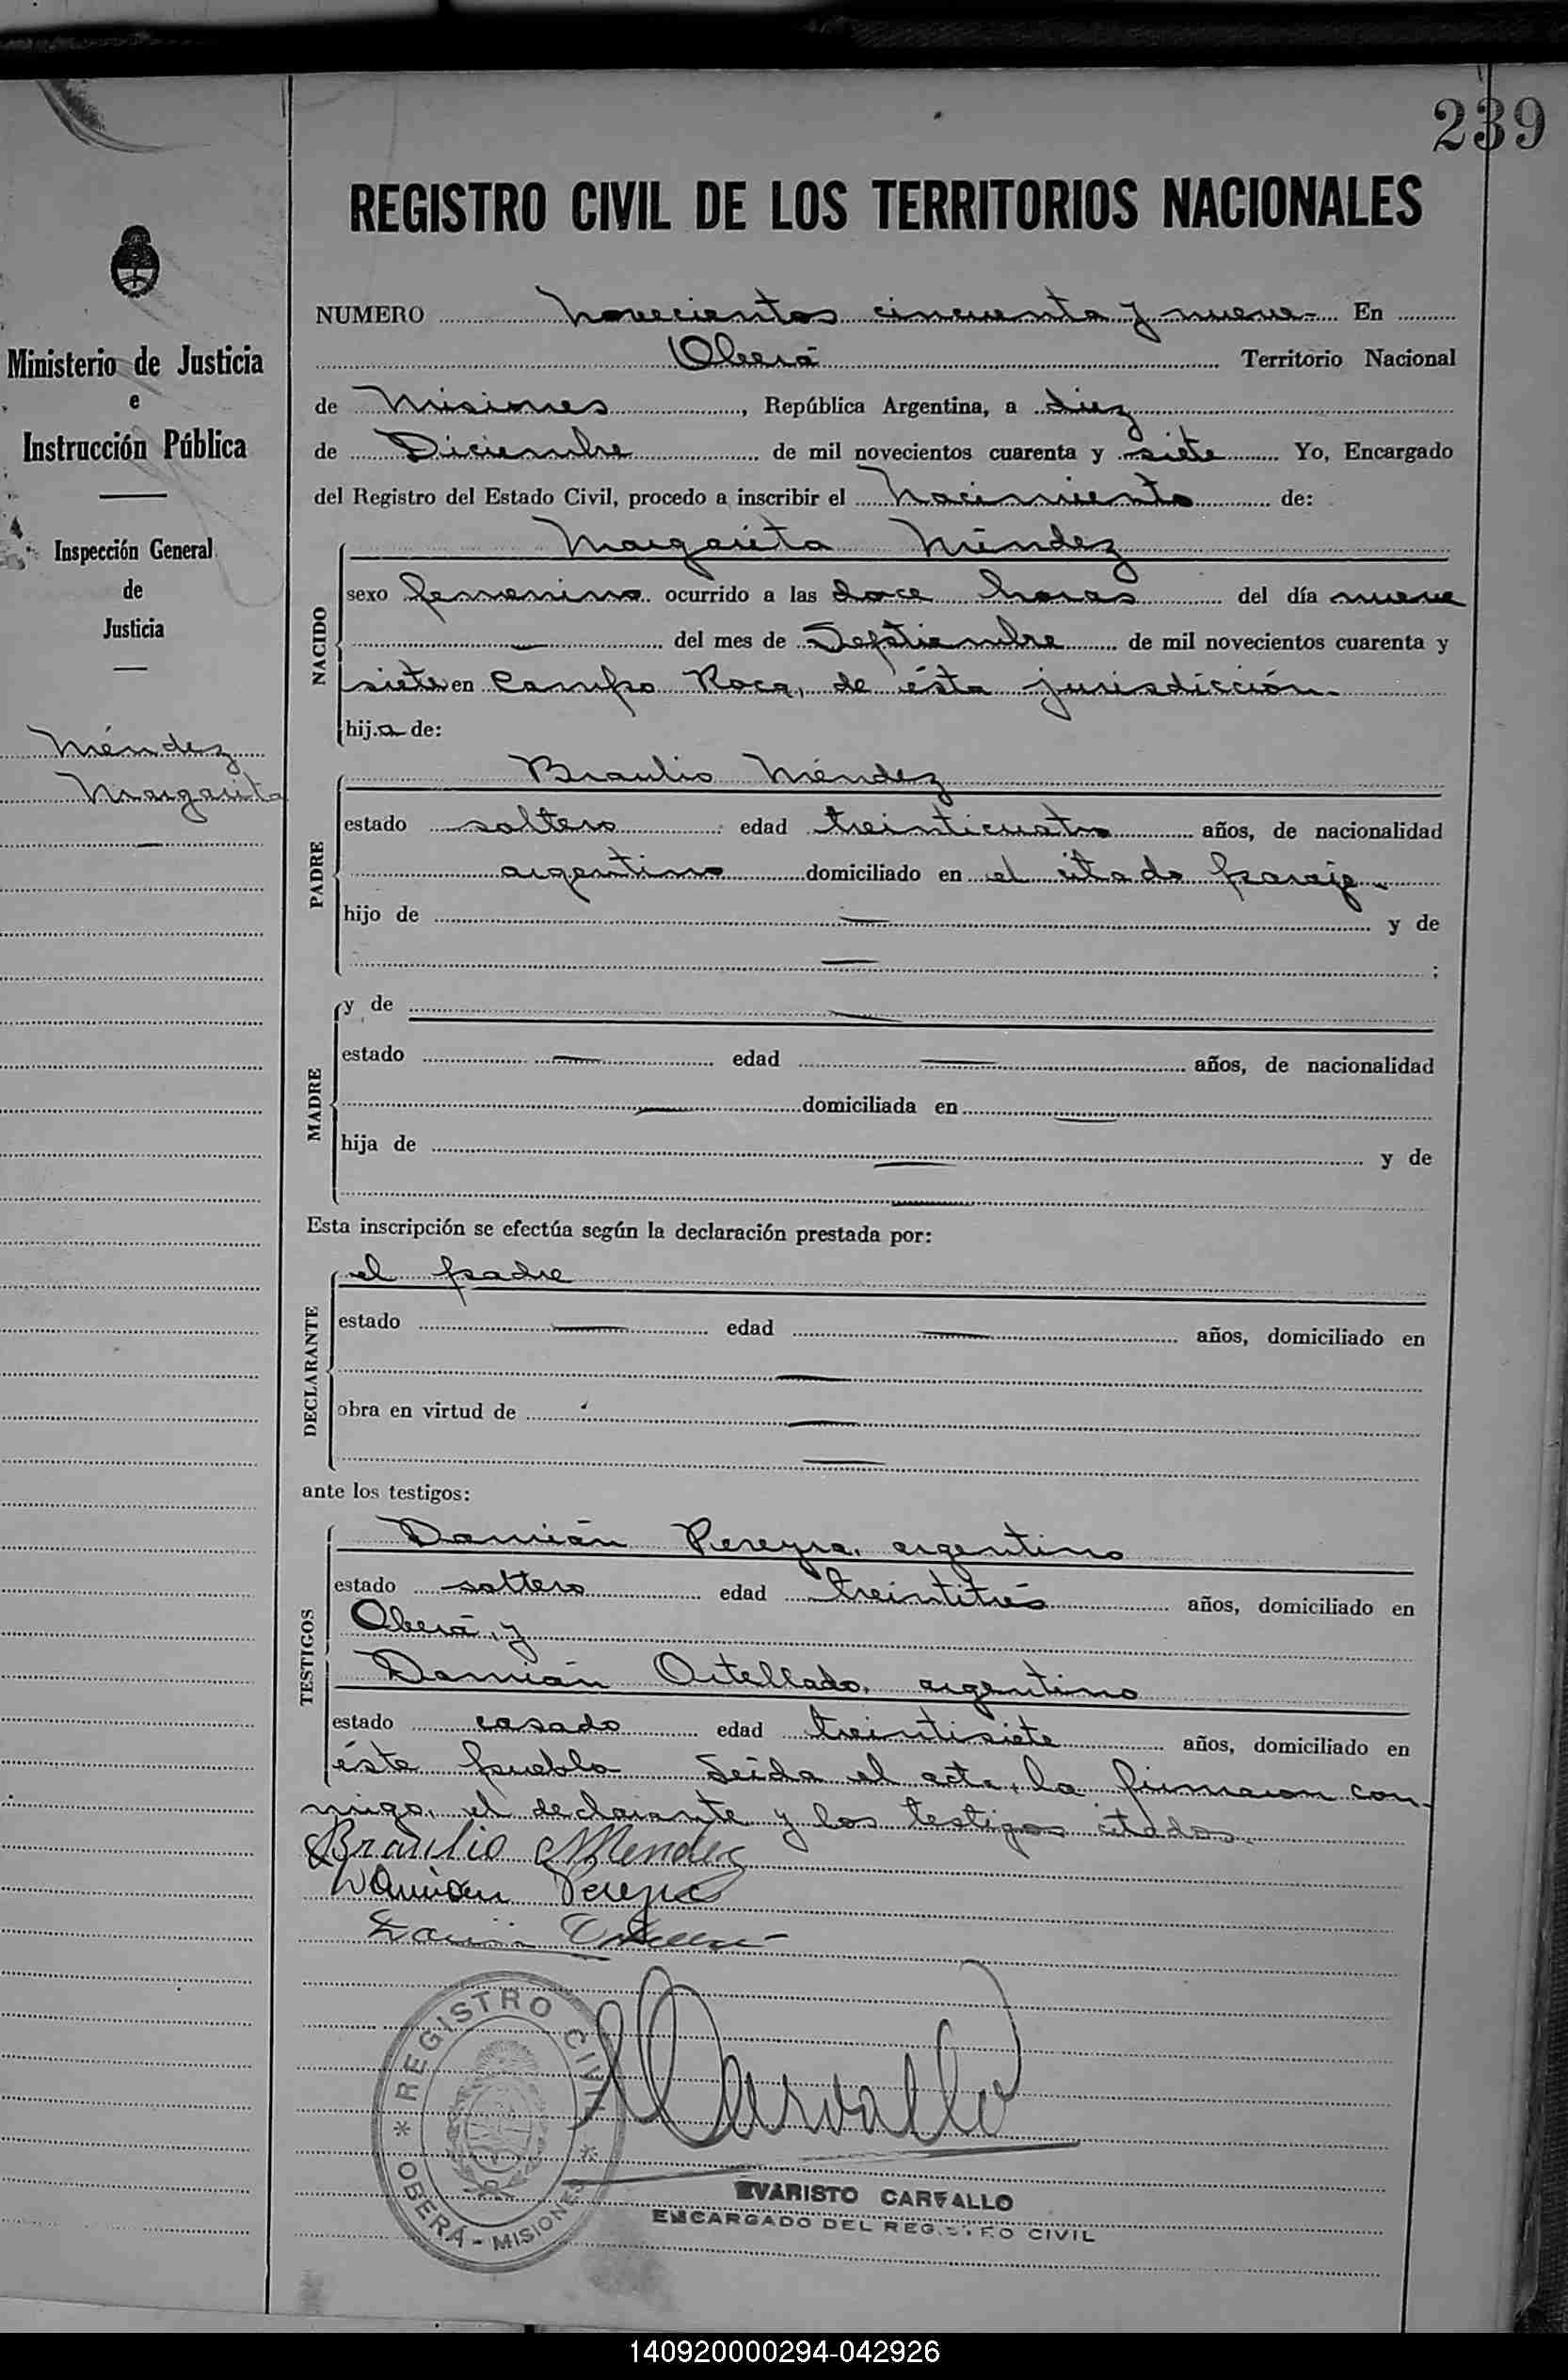 239
REGISTRO CIVIL DE LOS TERRITORIOS NACIONALES
Ministerio de Justicia
e
Instrucción Pública
Inspección General
de
Justicia
Méndez
Margarita
NUMERO novecientos cincuenta y nueve- En
Oberá Territorio Nacional
de Misiones, República Argentina, a diez
de Diciembre de mil novecientos cuarenta y siete Yo, Encargado
del Registro del Estado Civil, procedo a inscribir el Nacimiento de:
NACIDO
Margarita Méndez
sexo femenino ocurrido a las doce horas del día nueve
del mes de Septiembre de mil novecientos cuarenta y
siete en Campo Roca, de ésta jurisdicción.
hija de:
PADRE
Braulio Méndez
estado soltero edad treinticuatro años, de nacionalidad
argentino domiciliado en el citado paraje
hijo de y de
;
MADRE
y de
estado edad años, de nacionalidad
domiciliada en
hija de y de
Esta inscripción se efectúa según la declaración prestada por:
DECLARANTE
el padre
estado edad años, domiciliado en
obra en virtud de
ante los testigos:
TESTIGOS
Damián Pereyra, argentino
estado soltero edad treintitrés años, domiciliado en
Oberá, y
Damián Ortellado, argentino
estado casado edad treintisiete años, domiciliado en
éste pueblo Leída el acta, la firmaron con-
migo, el declarante y los testigos citados.
Braulio Mendez
Damian Pereyra
REGISTRO CIVIL
OBERÁ - MISIONES
Carvallo
EVARISTO CARVALLO
ENCARGADO DEL REGISTRO CIVIL
140920000294-042926